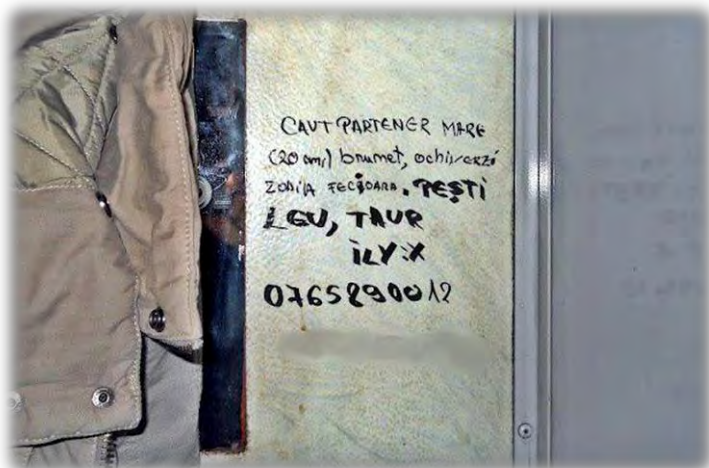 CAUT PARTENER MARE
(20 ani) brumet, ochi verzi
ZODIA FECIOARA. PEȘTI
LEU, TAUR
ILY:X
0765890012